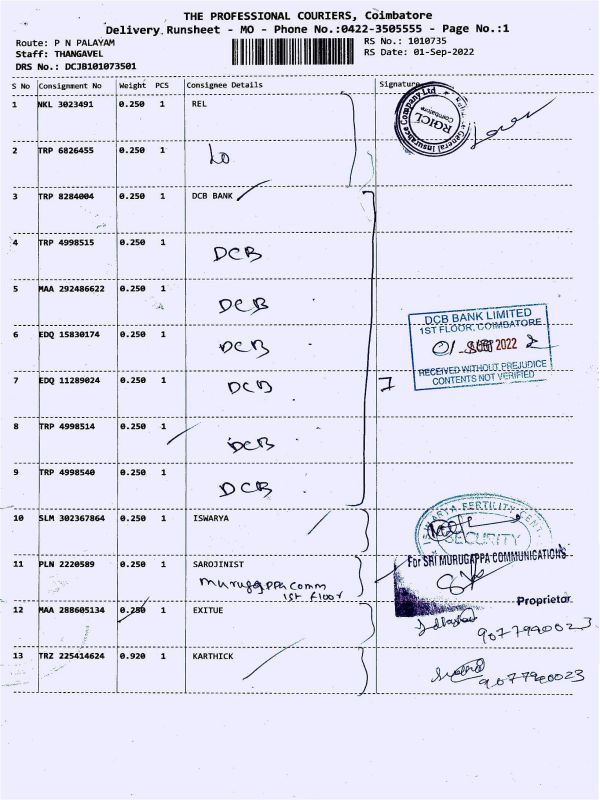 THE PROFESSIONAL COURIERS, Coimbatore
Delivery Runsheet - MO - Phone No.:0422-3505555 - Page No.:1
Route: P N PALAYAM
RS No.: 1010735
Staff: THANGAVEL
RS Date: 01-Sep-2022
DRS No.: DCJB101073501
S No Consignment No Weight PCS Consignee Details Signature
1 NKL 3023491 0.250 1 REL
Insurance Company Ltd
RGICL
Coimbatore
2 TRP 6826455 0.250 1
3 TRP 8284004 0.250 1 DCB BANK
4 TRP 4998515 0.250 1 DCB
5 MAA 292486622 0.250 1 DCB
DCB BANK LIMITED
1ST FLOOR, COIMBATORE
6 EDQ 15830174 0.250 1 DCB
01 SEP 2022
RECEIVED WITHOUT PREJUDICE
CONTENTS NOT VERIFIED
7 EDQ 11289024 0.250 1 DCB
7
8 TRP 4998514 0.250 1 DCB
9 TRP 4998540 0.250 1 DCB
10 SLM 302367864 0.250 1 ISWARYA
ISWARYA FERTILITY CENT
SECURITY
11 PLN 2220589 0.250 1 SAROJINIST
Murugappa comm
1st floor
For SRI MURUGAPPA COMMUNICATIONS
Proprietor
12 MAA 288605134 0.250 1 EXITUE
9077940023
13 TRZ 225414624 0.920 1 KARTHICK
9077940023